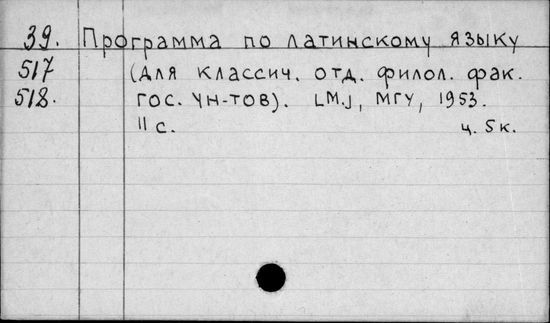 39. Программа по латинскому языку
517 (для классич. отд. филол. фак.
518. гос. ун-тов). [М.], МГУ, 1953.
11 с. ц. 5к.